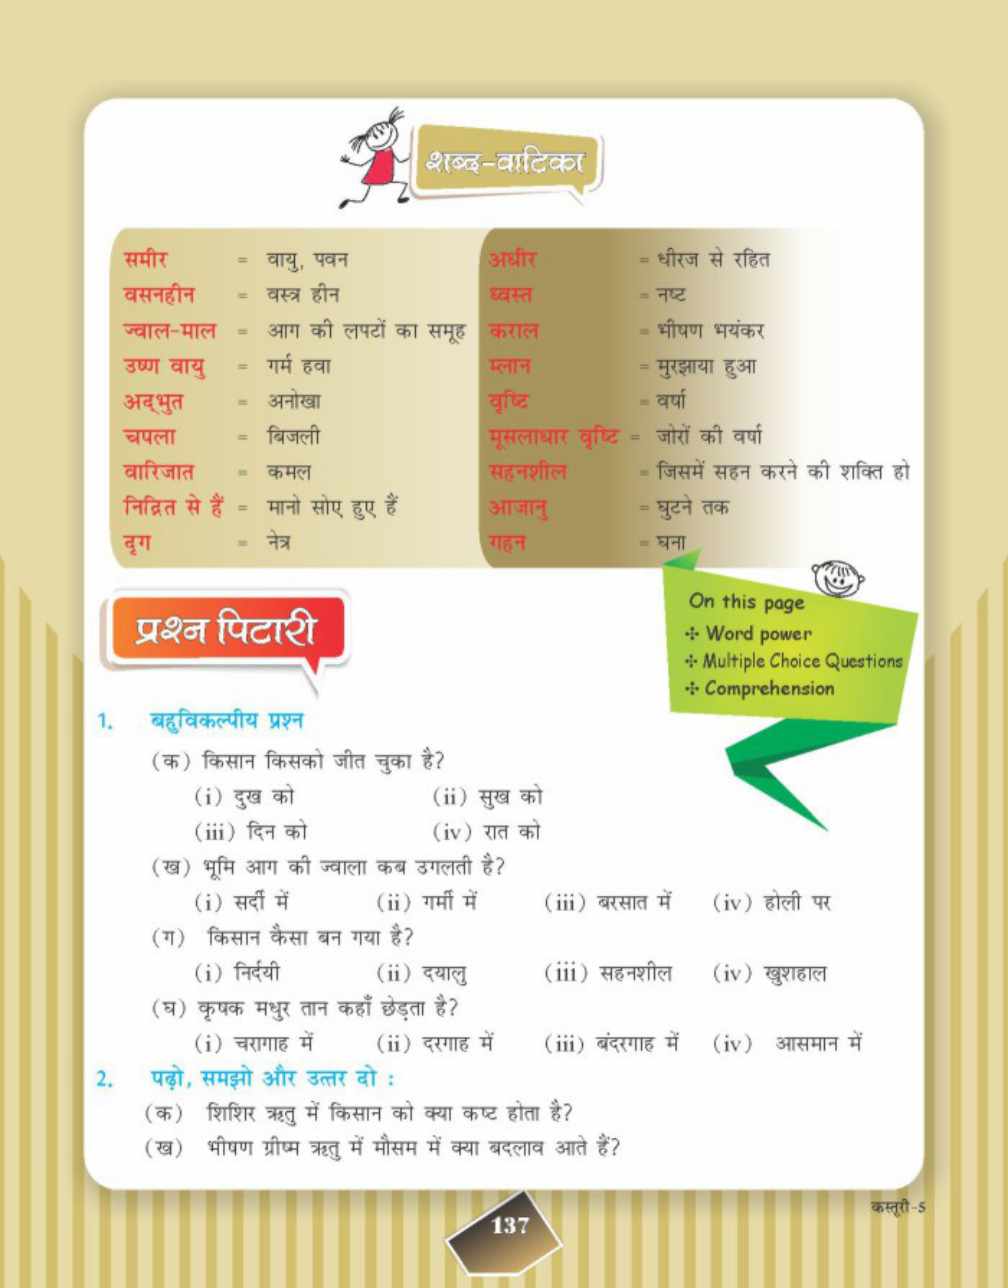 शब्द-वाटिका
समीर = वायु, पवन
वसनहीन = वस्त्र हीन
ज्वाल-माल = आग की लपटों का समूह
उष्ण वायु = गर्म हवा
अद्‌भुत = अनोखा
चपला = बिजली
वारिजात = कमल
निद्रित से हैं = मानो सोए हुए हैं
दृग = नेत्र
अधीर = धीरज से रहित
ध्वस्त = नष्ट
कराल = भीषण भयंकर
म्लान = मुरझाया हुआ
वृष्टि = वर्षा
मूसलाधार वृष्टि = जोरों की वर्षा
सहनशील = जिसमें सहन करने की शक्ति हो
आजानु = घुटने तक
गहन = घना
On this page
✣ Word power
✣ Multiple Choice Questions
✣ Comprehension
प्रश्न पिटारी
1. बहुविकल्पीय प्रश्न
(क) किसान किसको जीत चुका है?
(i) दुख को (ii) सुख को
(iii) दिन को (iv) रात को
(ख) भूमि आग की ज्वाला कब उगलती है?
(i) सर्दी में (ii) गर्मी में (iii) बरसात में (iv) होली पर
(ग) किसान कैसा बन गया है?
(i) निर्दयी (ii) दयालु (iii) सहनशील (iv) खुशहाल
(घ) कृषक मधुर तान कहाँ छेड़ता है?
(i) चरागाह में (ii) दरगाह में (iii) बंदरगाह में (iv) आसमान में
2. पढ़ो, समझो और उत्तर दो :
(क) शिशिर ऋतु में किसान को क्या कष्ट होता है?
(ख) भीषण ग्रीष्म ऋतु में मौसम में क्या बदलाव आते हैं?
कस्तूरी-5
137